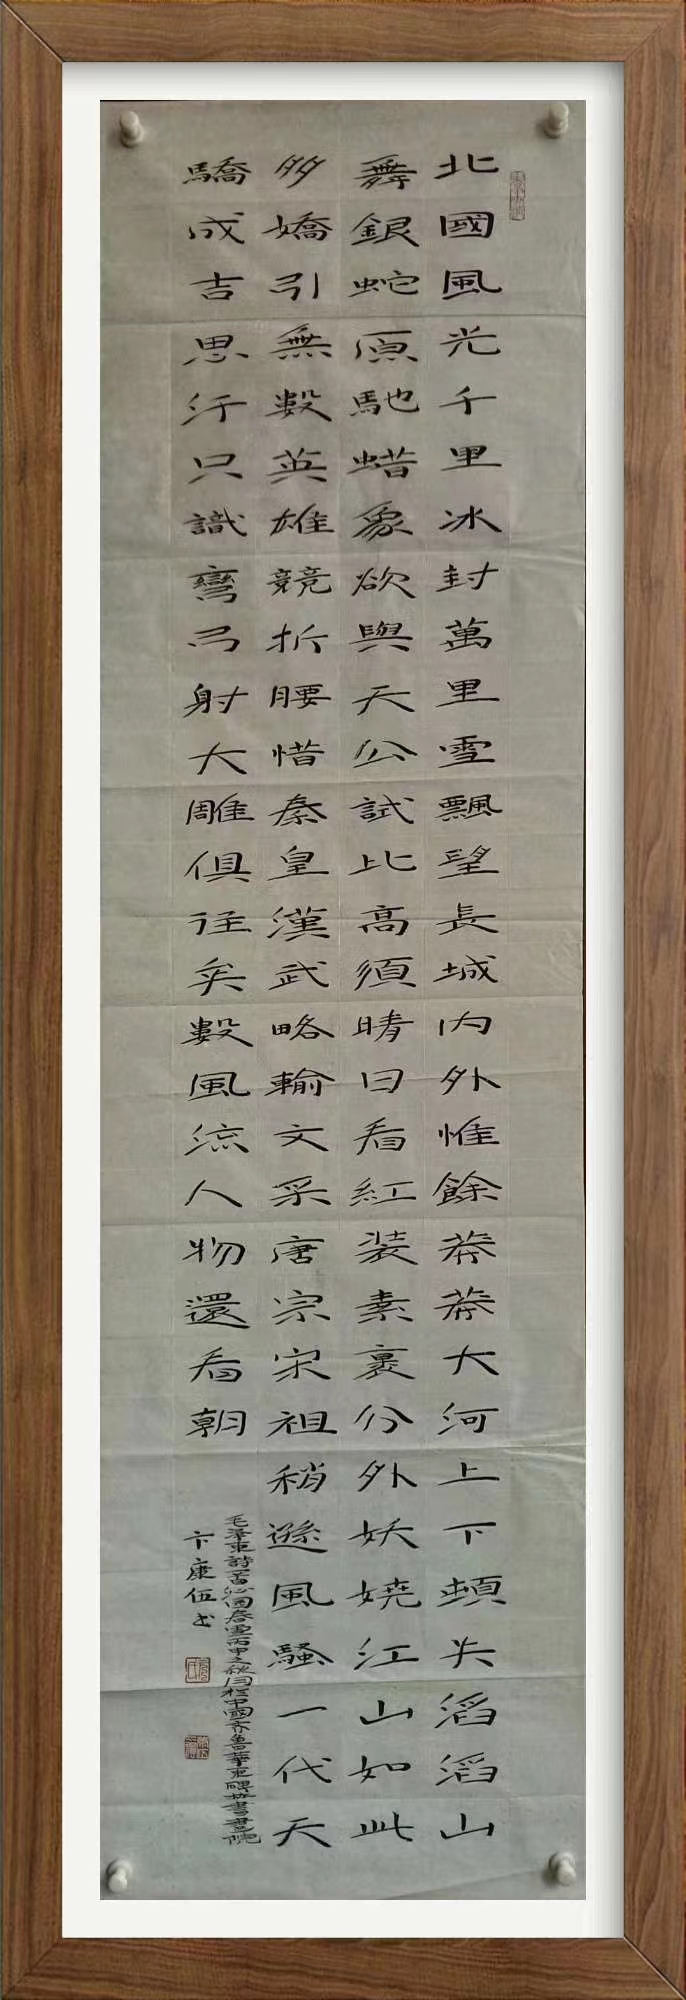 北國風光千里冰封萬里雪飄望長城内外惟餘莽莽大河上下頓失滔滔山
舞銀蛇原馳蜡象欲與天公試比高須晴日看紅装素裹分外妖嬈江山如此
多嬌引無數英雄競折腰惜秦皇漢武略輸文采唐宗宋祖稍遜風騷一代天
驕成吉思汗只識彎弓射大雕俱往矣數風流人物還看朝
毛澤東詩一首沁園春雪丙申之秋於中國齊魯華東碑林書畫院
卞康伍书